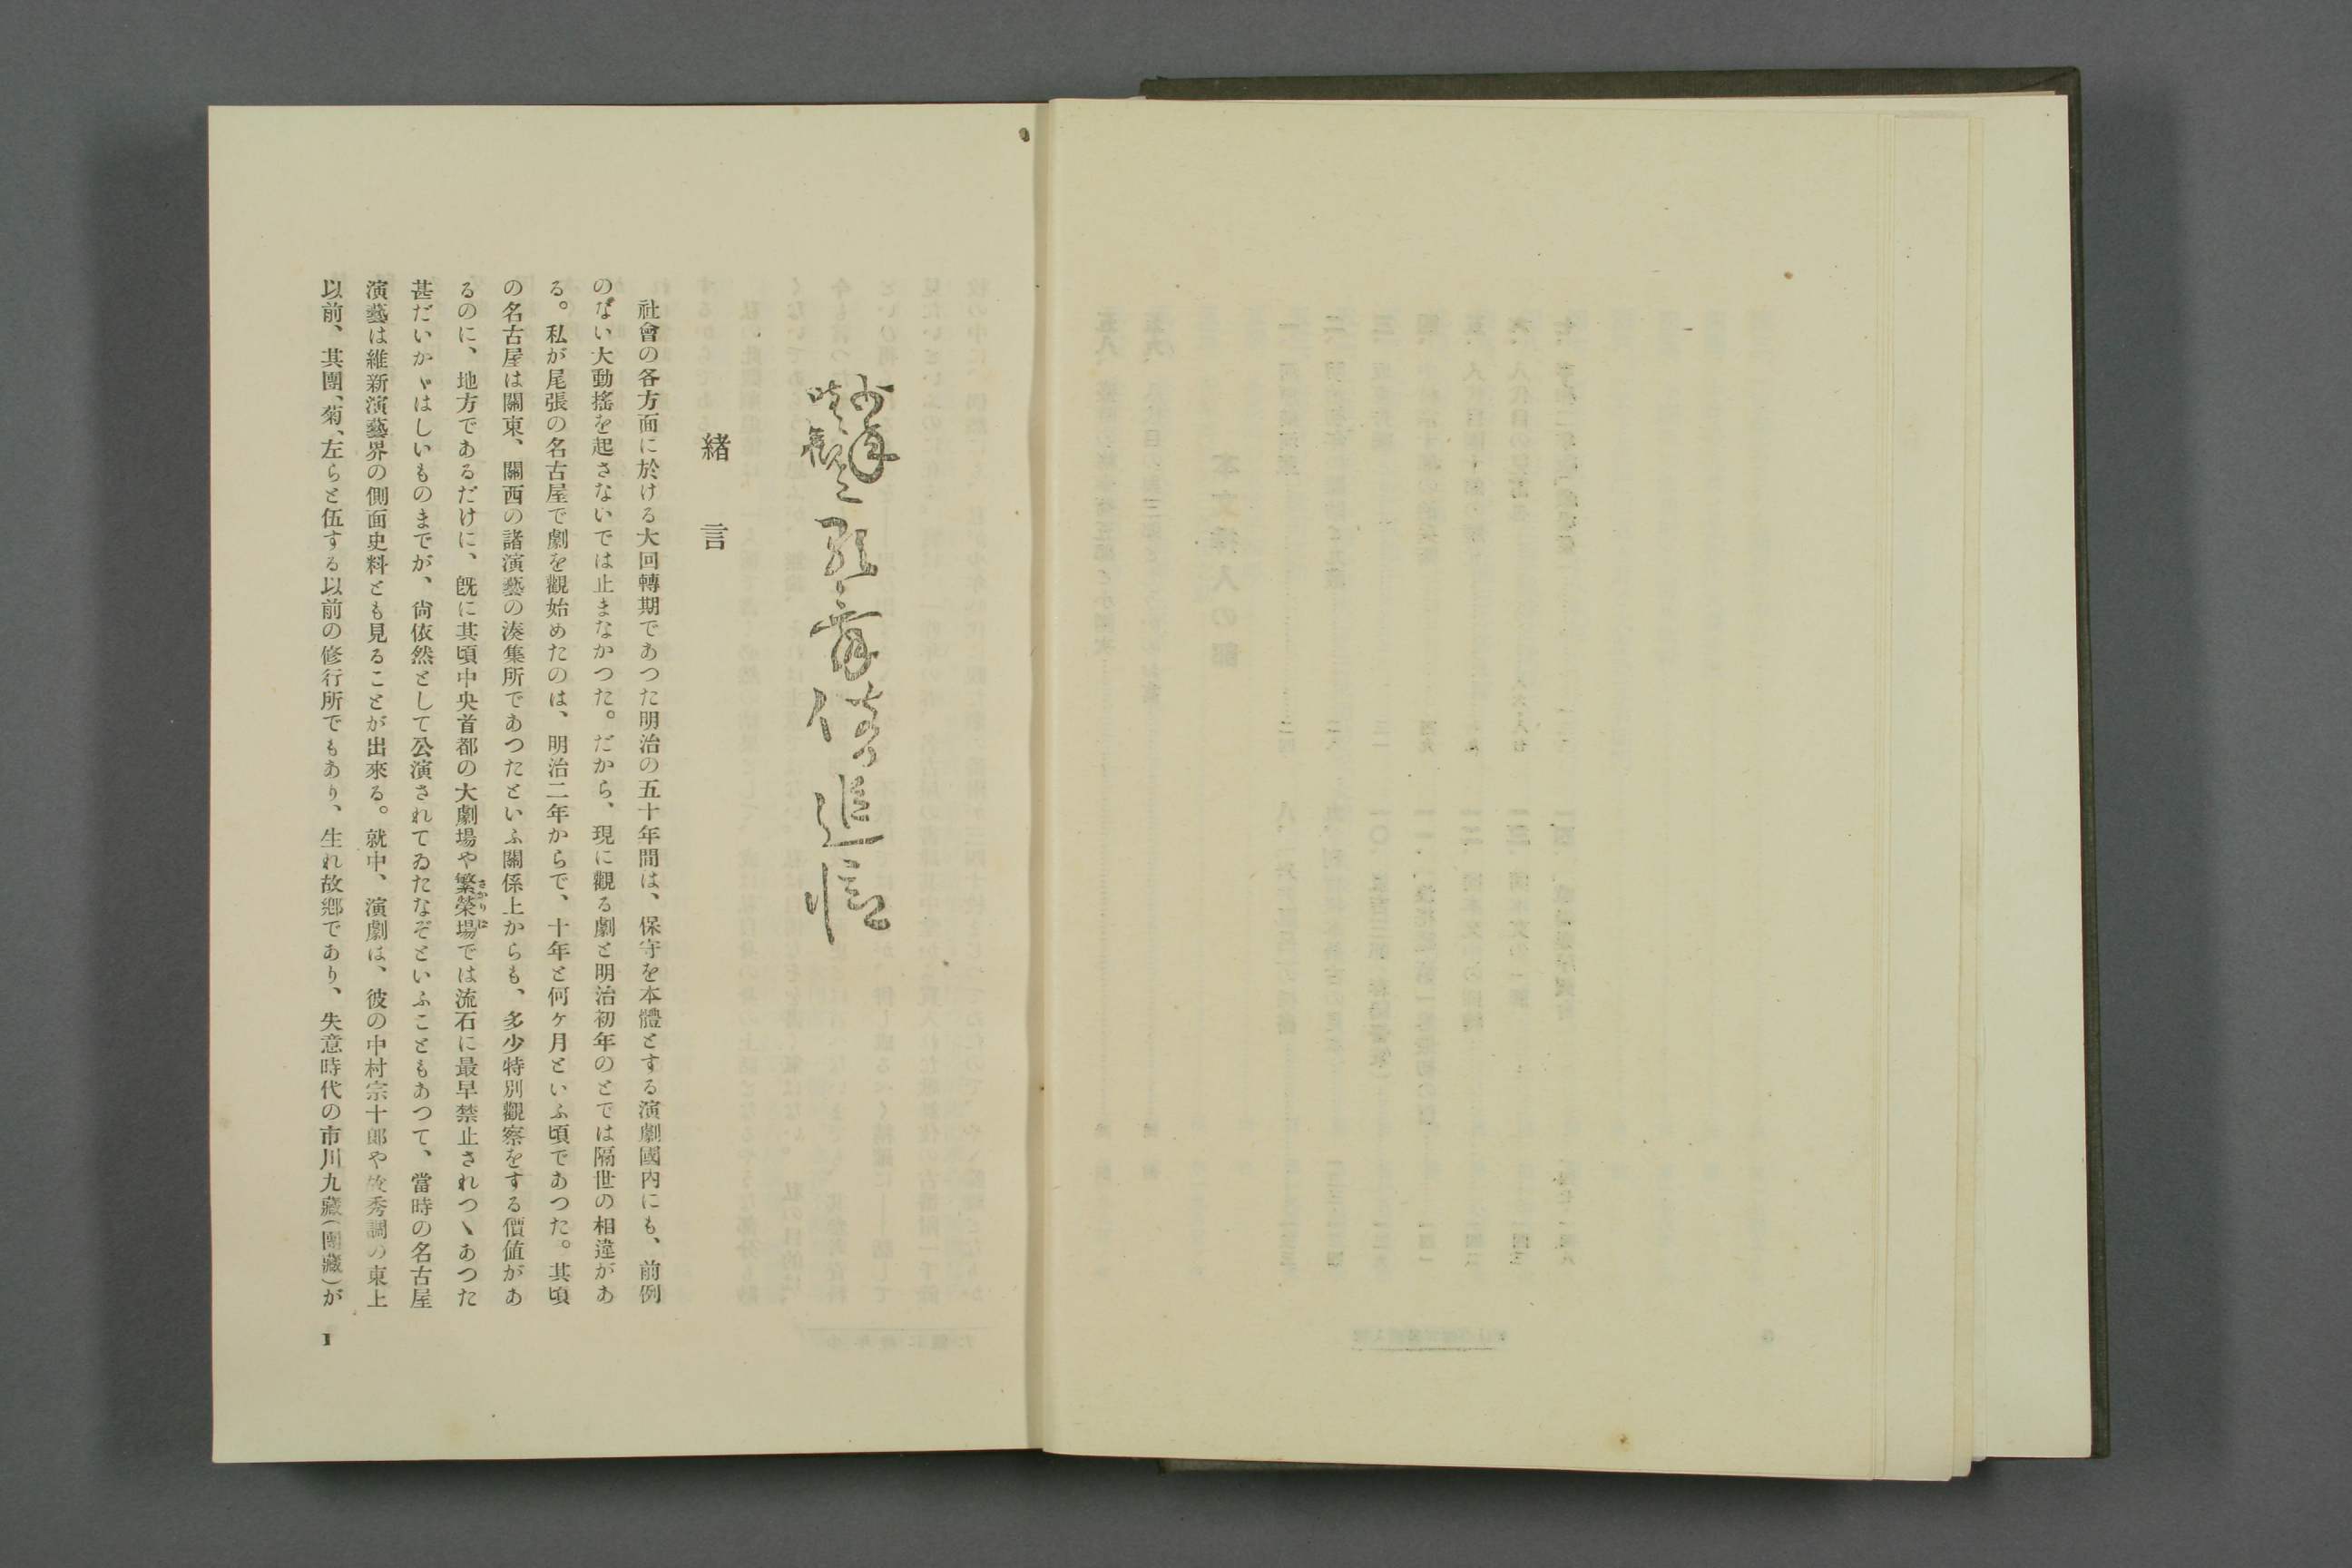 少年
時に觀た
歌舞伎の追憶
緒言
社會の各方面に於ける大回轉期であつた明治の五十年間は、保守を本體とする演劇國内にも、前例
のない大動搖を起さないでは止まなかつた。だから、現に觀る劇と明治初年のとでは隔世の相違があ
る。私が尾張の名古屋で劇を觀始めたのは、明治二年からで、十年と何ヶ月といふ頃であつた。其頃
の名古屋は關東、關西の諸演藝の湊集所であつたといふ關係上からも、多少特別觀察をする價値があ
るのに、地方であるだけに、旣に其頃中央首都の大劇場や繁榮場さかりばでは流石に最早禁止されつゝあつた
甚だいかゞはしいものまでが、尙依然として公演されてゐたなぞといふこともあつて、當時の名古屋
演藝は維新演藝界の側面史料とも見ることが出來る。就中、演劇は、彼の中村宗十郎や後秀調の東上
以前、其團、菊、左らと伍する以前の修行所でもあり、生れ故鄕であり、失意時代の市川九藏(團藏)が
1